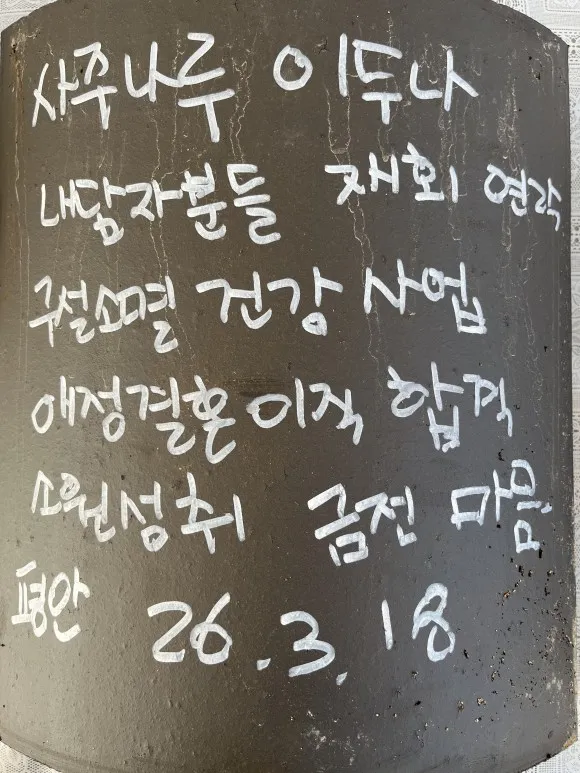 사주나루 이두나
내담자분들 재회 연락
구설소멸 건강 사업
애정결혼 이직 합격
소원성취 금전 마음
평안 26.3.18